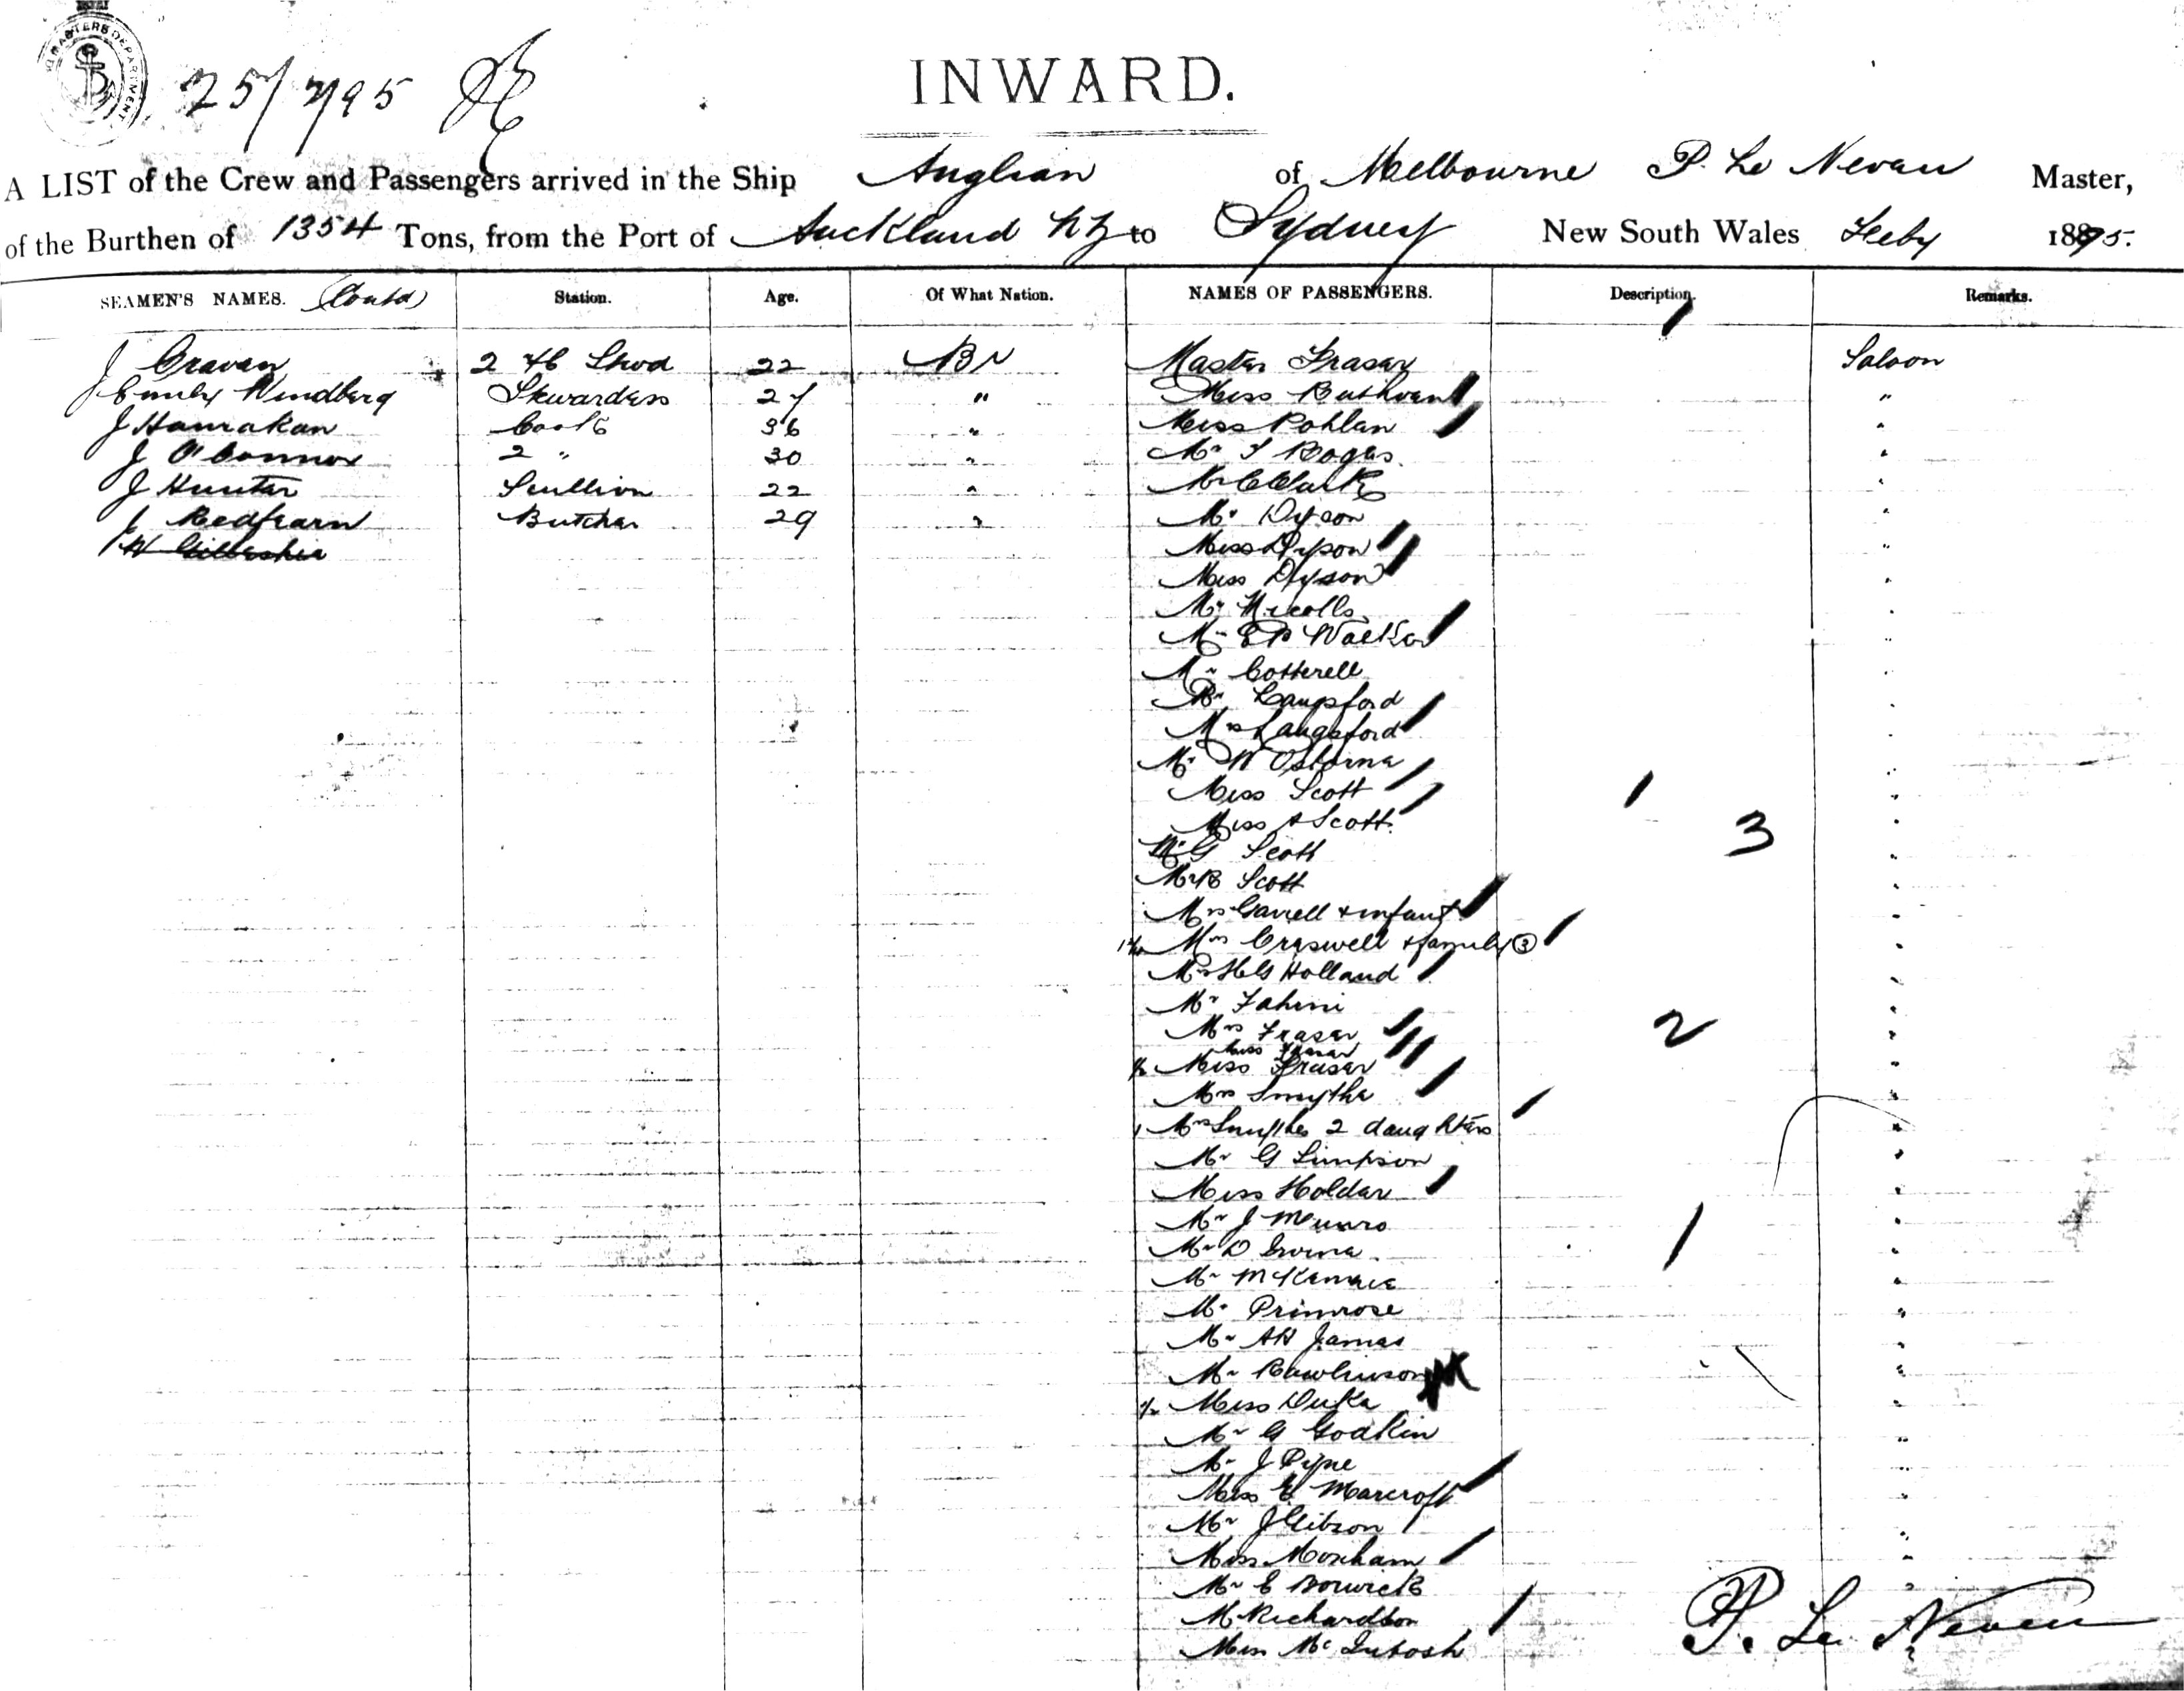 25/2/95
INWARD.
A LIST of the Crew and Passengers arrived in the Ship Anglian of Melbourne P. Le Neven Master,
of the Burthen of 1354 Tons, from the Port of Auckland NZ to Sydney New South Wales Feby 1895.
SEAMEN'S NAMES. (Contd) Station. Age. Of What Nation. NAMES OF PASSENGERS. Description. Remarks.
J Craven 2 Stwd 22 Br Master Fraser Saloon
Emily Windberg Stewardess 27 " Miss Ruthven "
J Hanrahan Cook 36 " Miss Pohlan "
J O'Connor 2 " 30 " Mr Rogers "
J Hunter Scullion 22 " Mr C Clark "
J Redfearn Butcher 29 " Mr Dyson "
W Miss Dyson "
Miss Dyson "
Mr Nicolls "
Mr E P Walker "
Mr Cotterell "
Mr Langsford "
Mrs Langsford "
Mr W Osborne "
Miss Scott "
Miss A Scott "
3
Mr G Scott "
Mr R Scott "
Mrs Garrell & infant "
Mrs Creswell & family 3 "
Mr H G Holland "
Mr Fahmi "
Mrs Fraser 2 "
Miss Fraser
Miss Fraser "
Mrs Smythe "
Mrs Smythes 2 daughters "
Mr G Simpson "
Miss Holder "
Mr J Munro "
Mr D Irvine "
Mr McKenzie "
Mr Primrose "
Mr AH James "
Mr Rawlinson "
Miss Duke "
Mr G Godkin "
Mr J Pyne "
Miss E Marcroft "
Mr J Gibson "
Miss Moxham "
Mr E Borwick "
M Richardson
Miss McIntosh
P. Le Neven